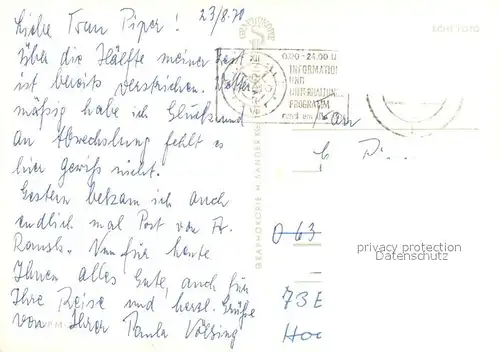 23/8.70
Liebe Frau Piper!
Über die Hälfte meiner Zeit
ist bereits verstrichen. Wetter-
mäßig habe ich Glück und
an Abwechslung fehlt es
hier gewiß nicht.
Gestern bekam ich auch
endlich mal Post von Fr.
Rausch. Nun für heute
Ihnen alles Gute, auch für
Ihre Reise und herzl. Grüße
von Ihrer Paula Völsing
ECHT FOTO
0.00-24.00 U
INFORMATION
UND
UNTERHALTUNG
PROGRAMM
rund um die
GRAPHOKOPIE H. SANDER KG
Frau
P...
O 63
73 E
Hoc
privacy protection
Datenschutz